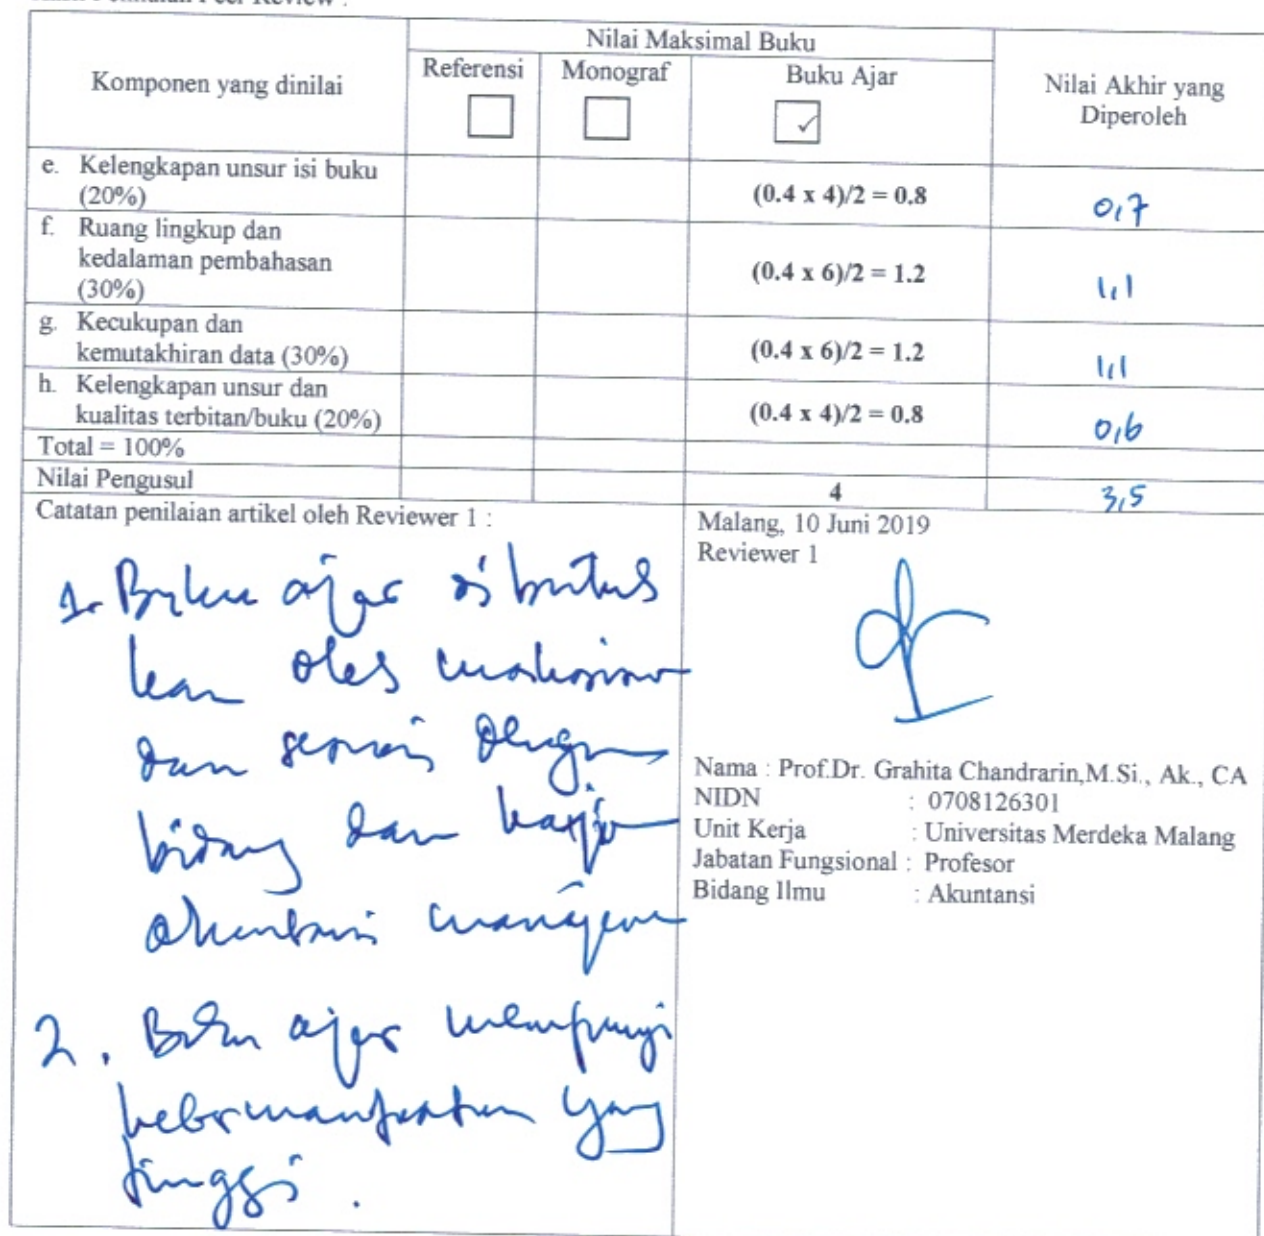 Komponen yang dinilai
Nilai Maksimal Buku
Referensi
Monograf
Buku Ajar
✓
Nilai Akhir yang
Diperoleh
e. Kelengkapan unsur isi buku
(20%)
(0.4 x 4)/2 = 0.8
0,7
f. Ruang lingkup dan
kedalaman pembahasan
(30%)
(0.4 x 6)/2 = 1.2
1,1
g. Kecukupan dan
kemutakhiran data (30%)
(0.4 x 6)/2 = 1.2
1,1
h. Kelengkapan unsur dan
kualitas terbitan/buku (20%)
(0.4 x 4)/2 = 0.8
0,6
Total = 100%
Nilai Pengusul
4
3,5
Catatan penilaian artikel oleh Reviewer 1 :
1. Buku ajar dibutuh
kan oleh mahasiswa
dan sesuai dengan
bidang dan kajian
akuntansi manajemen
2. Buku ajar mempunyai
kebermanfaatan yang
tinggi.
Malang, 10 Juni 2019
Reviewer 1
Nama : Prof.Dr. Grahita Chandrarin,M.Si., Ak., CA
NIDN : 0708126301
Unit Kerja : Universitas Merdeka Malang
Jabatan Fungsional : Profesor
Bidang Ilmu : Akuntansi